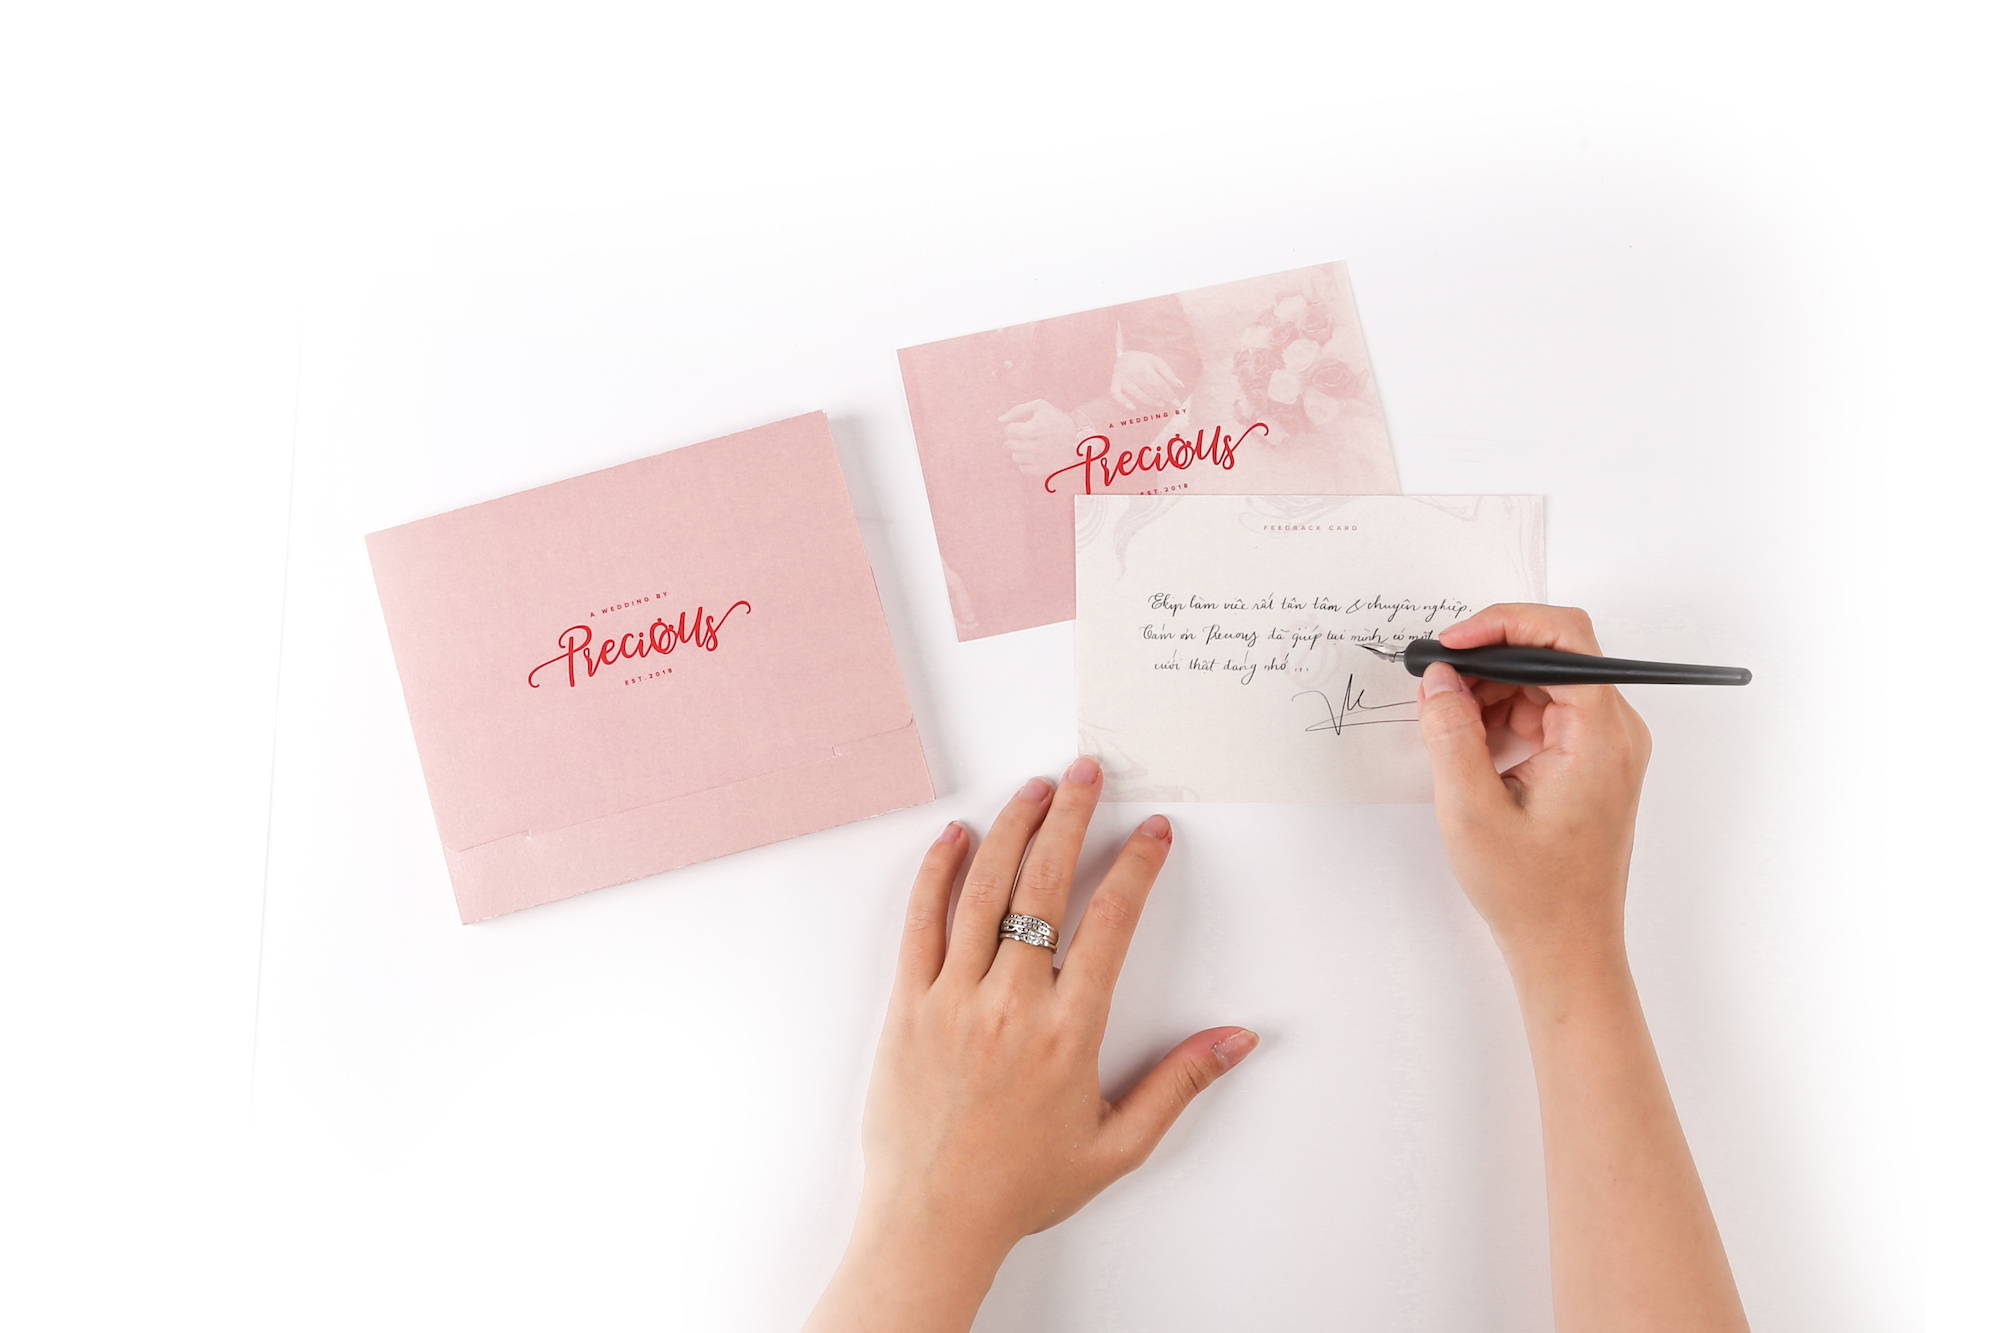 A WEDDING BY
Precious
EST.2018
A WEDDING BY
Precious
EST.2018
FEEDBACK CARD
Ekip làm việc rất tân tâm & chuyên nghiệp.
Cám ơn Precious đã giúp tụi mình có một
cưới thật đáng nhớ...